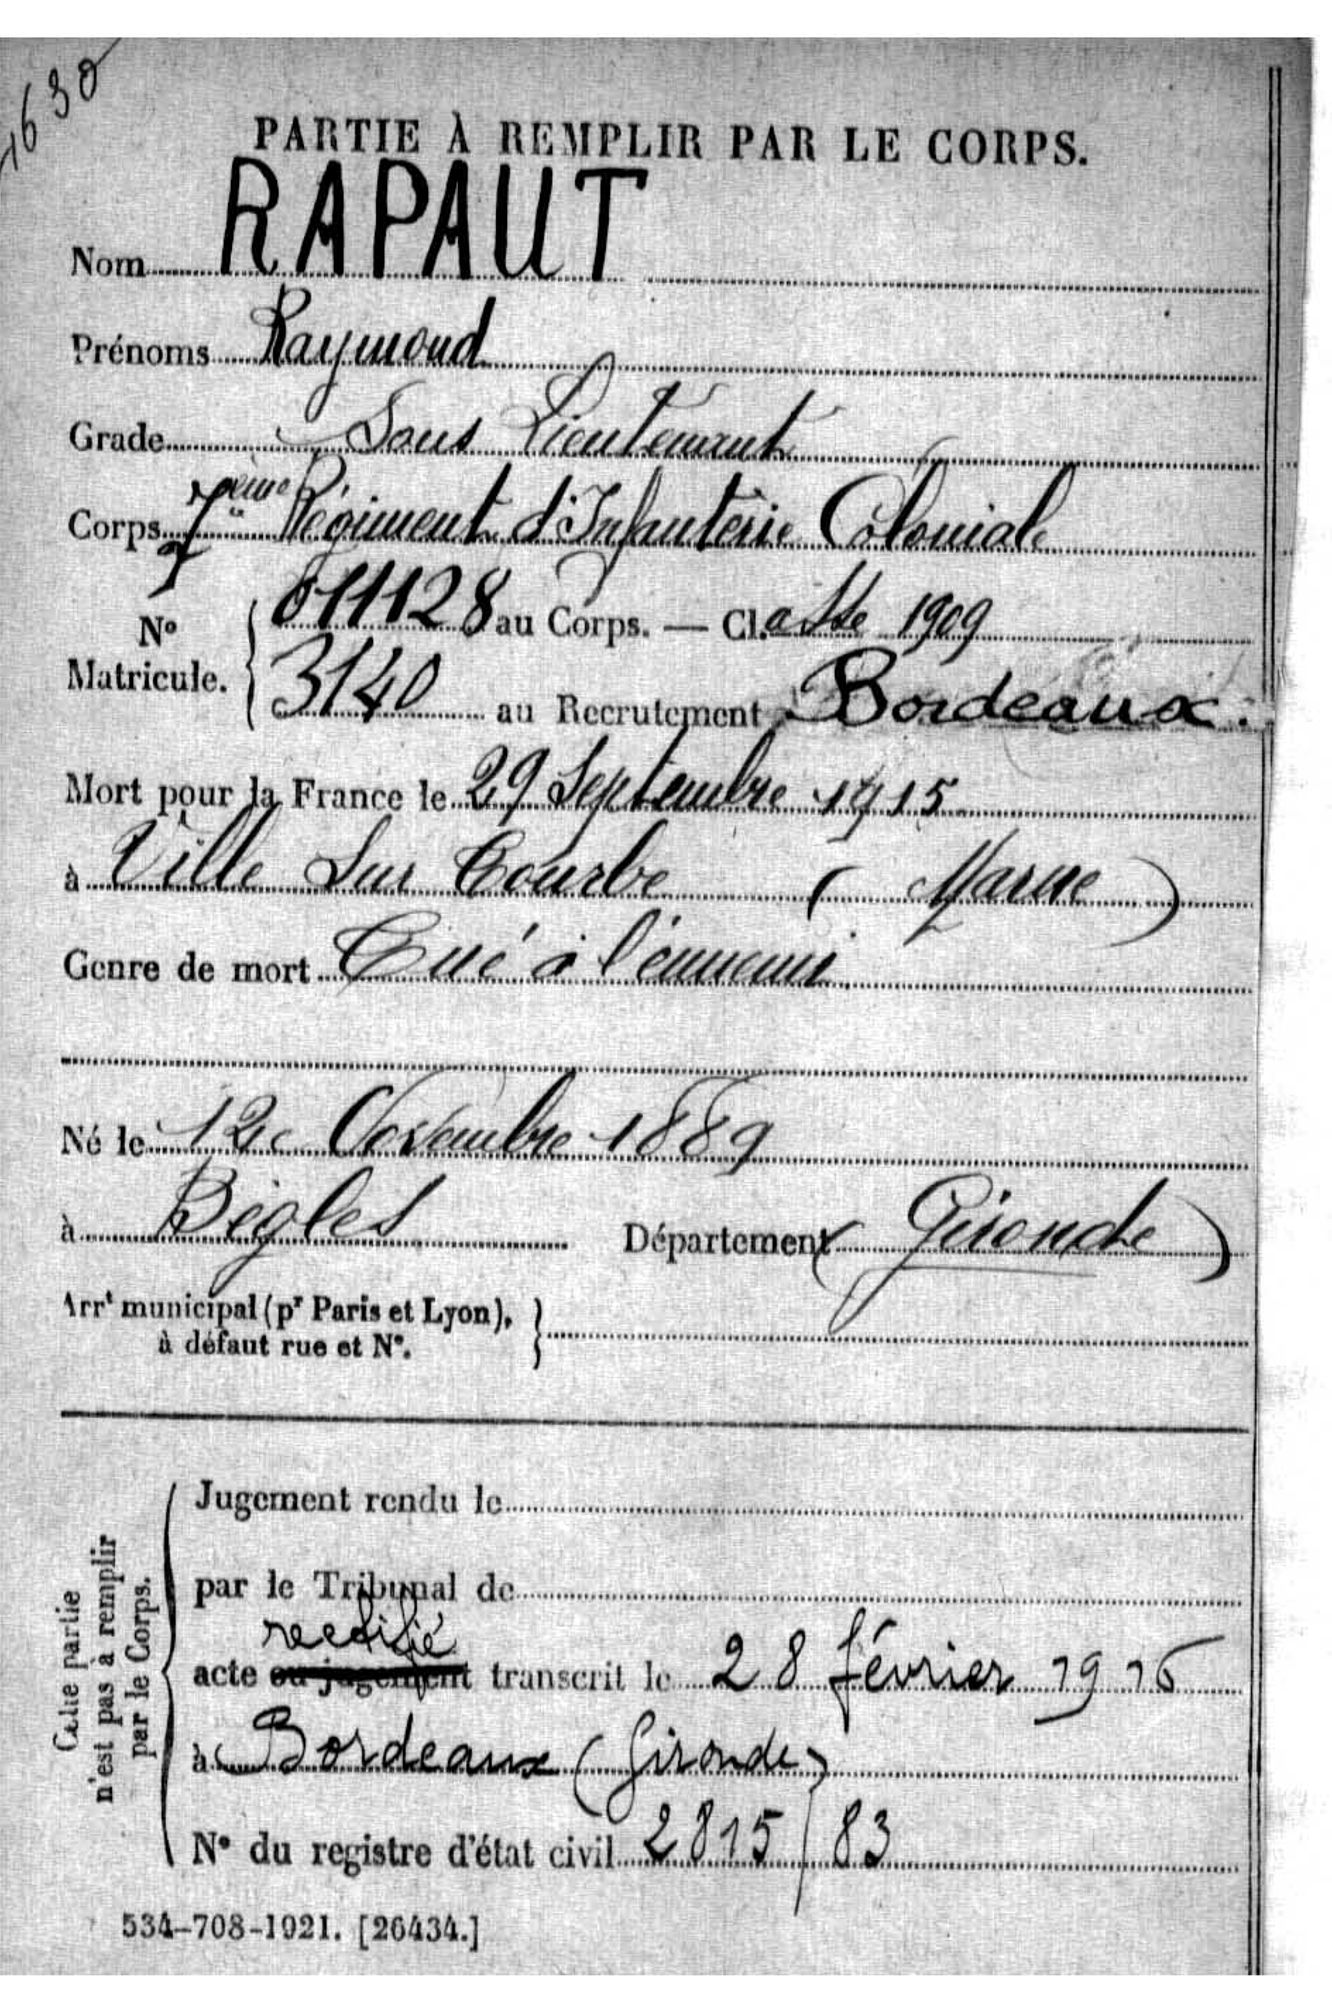 1630
PARTIE À REMPLIR PAR LE CORPS.
Nom RAPAUT
Prénoms Raymond
Grade Sous Lieutenant
Corps 7ème Régiment d'Infanterie Coloniale
No Matricule. { 011128 au Corps. — Cl.asse 1909
3140 au Recrutement Bordeaux.
Mort pour la France le 29 Septembre 1915
à Ville Sur Tourbe ( Marne )
Genre de mort Tué à l'ennemi
Né le 12 Novembre 1889
à Bègles Département ( Gironde )
Arrt municipal (pr Paris et Lyon), }
à défaut rue et No.
Cette partie
n'est pas à remplir
par le Corps.
Jugement rendu le
par le Tribunal de
rectifié
acte ou jugement transcrit le 28 février 1916
à Bordeaux (Gironde)
No du registre d'état civil 2815/83
534-708-1921. [26434.]